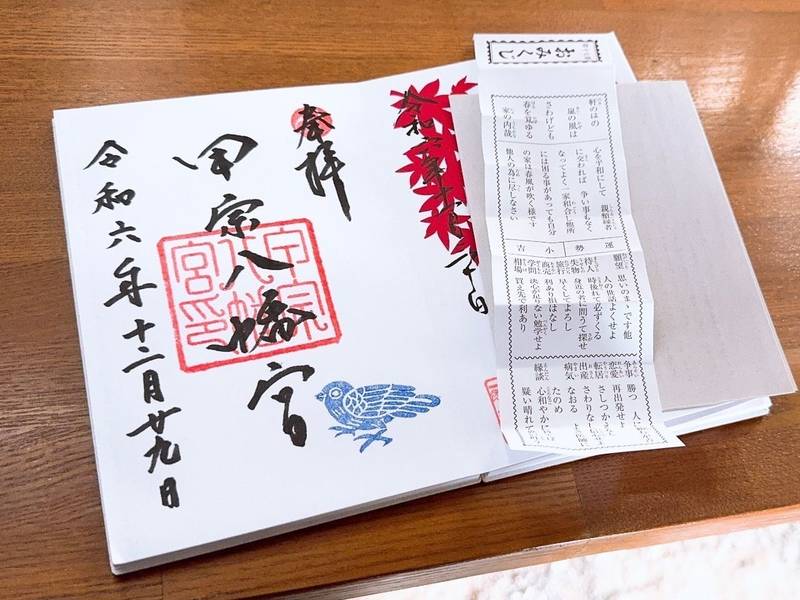 奉拝
甲宗八幡宮
令和六年十二月廿九日
おみくじ
軒のはの
嵐の風は
さわげども
春を見ゆる
家の内哉
心を平和にして 親類縁者
に交われば 争い事もなく
なってよく一家和合し他所
には困る事があっても自分
の家は春風が吹く様です
他人の為に尽しなさい
運勢 小吉
願望 思いのまゝです他
人の世話よくせよ
待人 時後れて必ずくる
失物 身近の者に問うて探せ
旅行 早くしてよろし
商売 利あり損はなし
学問 決心が足りない勉学せよ
相場 買え先で利あり
争事 勝つ 人に
恋愛 再出発せよ
転居 さしつかえ
出産 さわりなし
病気 なおる
たのめ
縁談 心和やかに
疑い晴れて